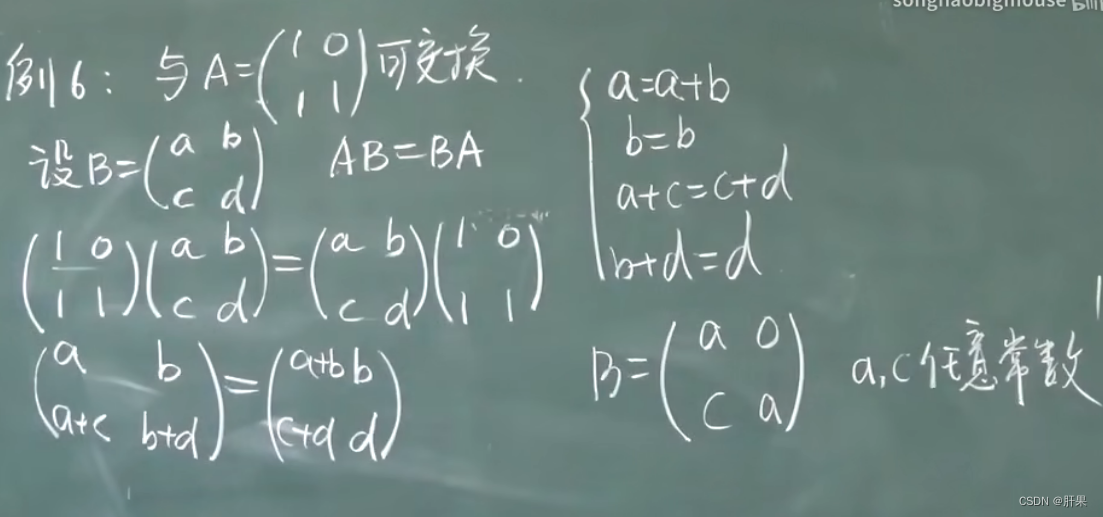 songhaobigmouse
例6: 与A=(1 0 1 1)可交换.
设B=(a b c d) AB=BA
(1 0 1 1)(a b c d)=(a b c d)(1 0 1 1)
(a b a+c b+d)=(a+b b c+d d)
{a=a+b
b=b
a+c=c+d
b+d=d
B=(a 0 c a) a,c任意常数
CSDN @肝果